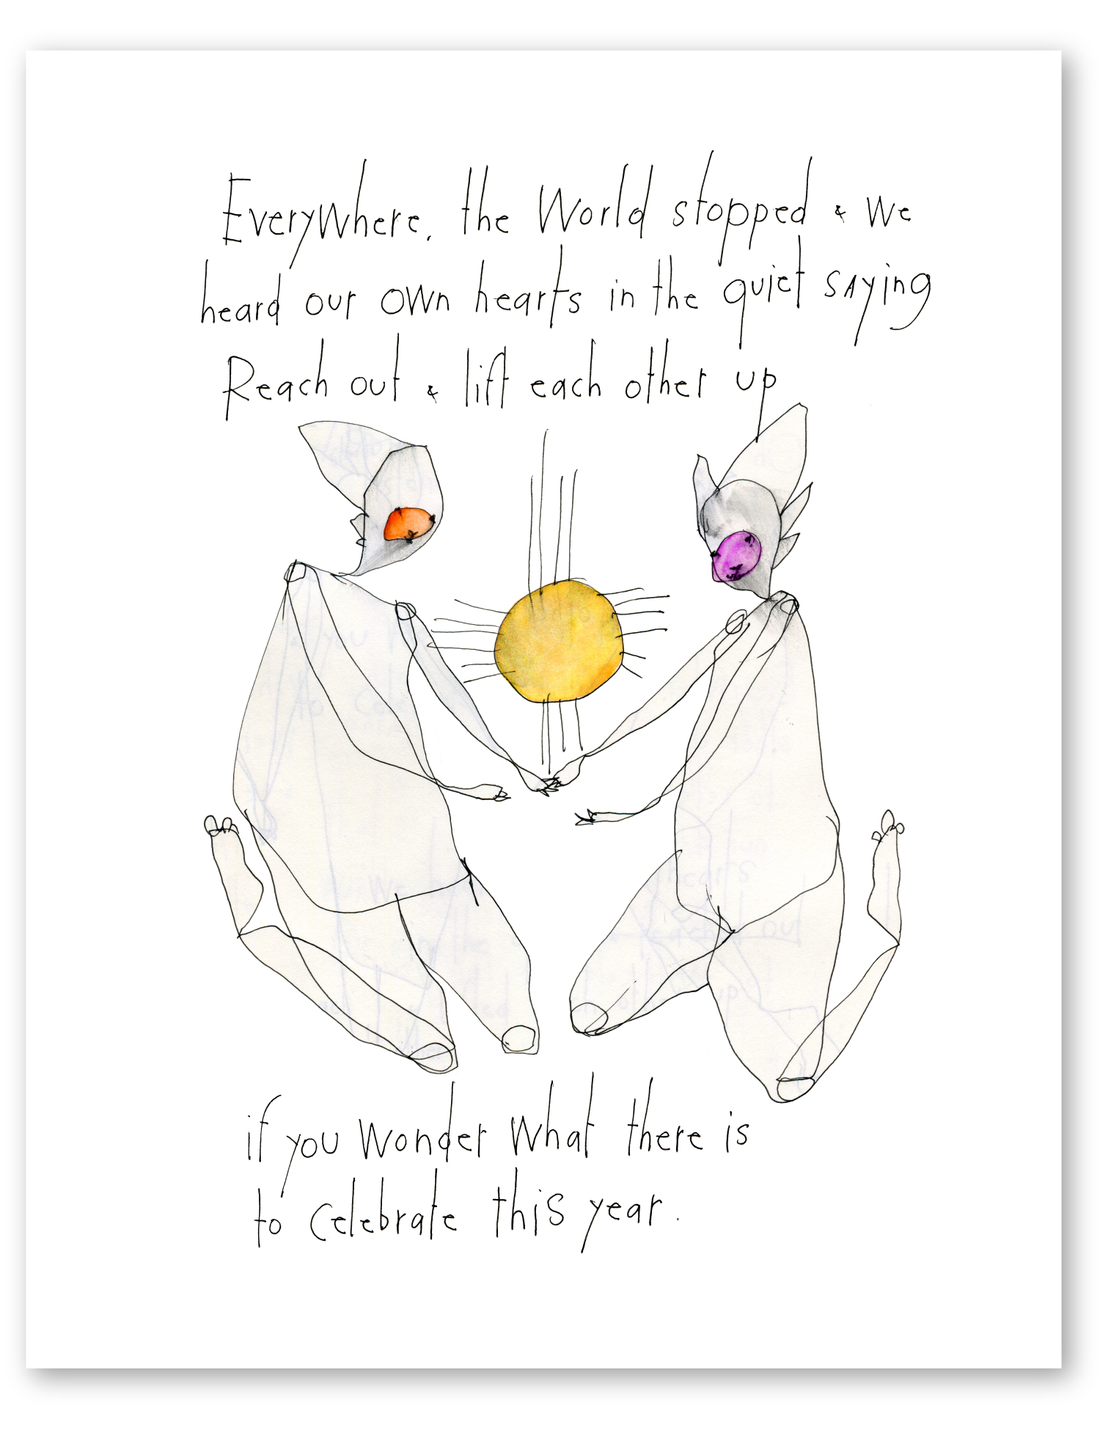 EveryWhere, the World stopped & We
heard our own hearts in the quiet saying
Reach out & lift each other up
if you Wonder What there is
to celebrate this year.